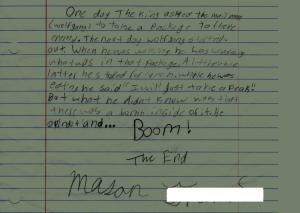 One day The King asked the mailman
(wolfgang) to take a Package to there
enemy. The next day wolfgang started
out. When he was walking he was wondering
whats up in that package. A little while
latter he stoped for lunch. while he was
eating he said "I will just take a Peak"
But what he didn't know was that
there was a bomb inside of it. He
and...
Boom!
The End
Mason